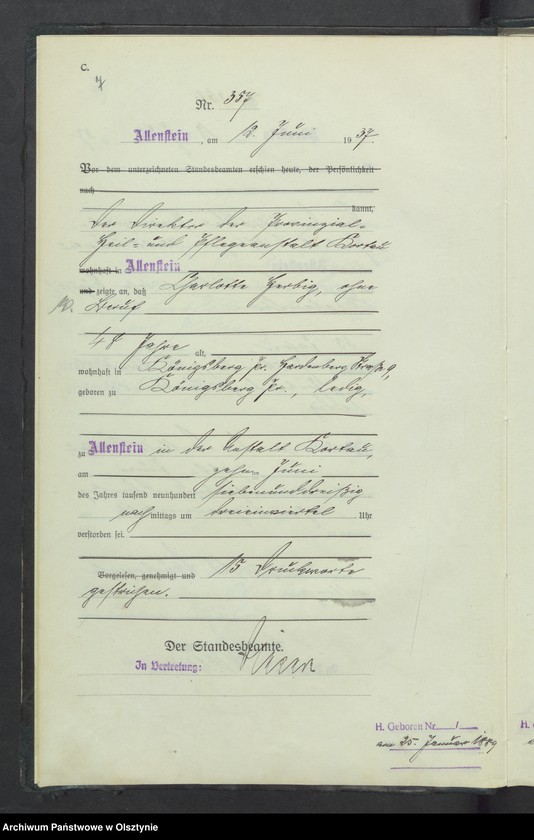 C.
Nr. 357
Allenstein, am 12. Juni 1937.
Vor dem unterzeichneten Standesbeamten erschien heute, der Persönlichkeit
nach
kannt,
Der Direktor der Provinzial-
Heil- und Pflegeanstalt Kortau
wohnhaft in Allenstein
und zeigte an, daß Charlotte Herbig, ohne
Beruf
48 Jahre alt,
wohnhaft in Königsberg Pr. Hardenberg Straße 9,
geboren zu Königsberg Pr., ledig,
zu Allenstein in der Anstalt Kortau,
am zehn Juni
des Jahres tausend neunhundert siebenunddreißig
nachmittags um dreieinviertel Uhr
verstorben sei.
Vorgelesen, genehmigt und 15 Druckworte
gestrichen.
Der Standesbeamte.
In Vertretung:
H. Geboren Nr. /
am 25. Januar 1889
H.
Archiwum Państwowe w Olsztynie